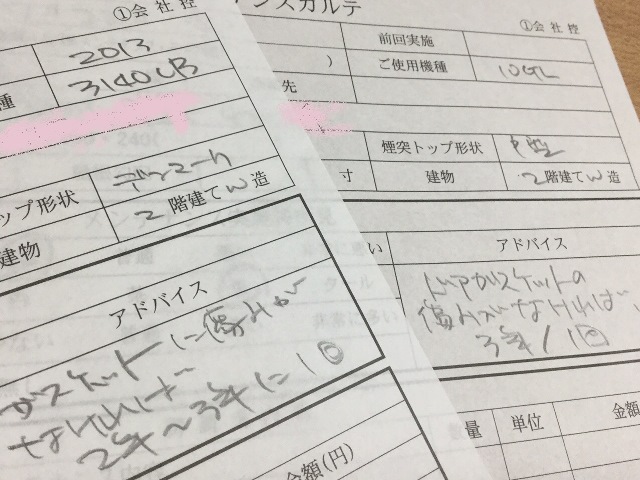 ①会社控
2013
種 3140CB
ップ形状 デンマーク
建物 2階建てW造
アドバイス
ガスケットに傷みが
なければ
2年~3年に1回
金額(円)
ンスカルテ ①会社控
前回実施
) ご使用機種 10GL
先
煙突トップ形状 P型
寸 建物 2階建てW造
アドバイス
ドアガスケットの
傷みがなければ
3年/1回
非常に多い
タール
数量 単位 金額